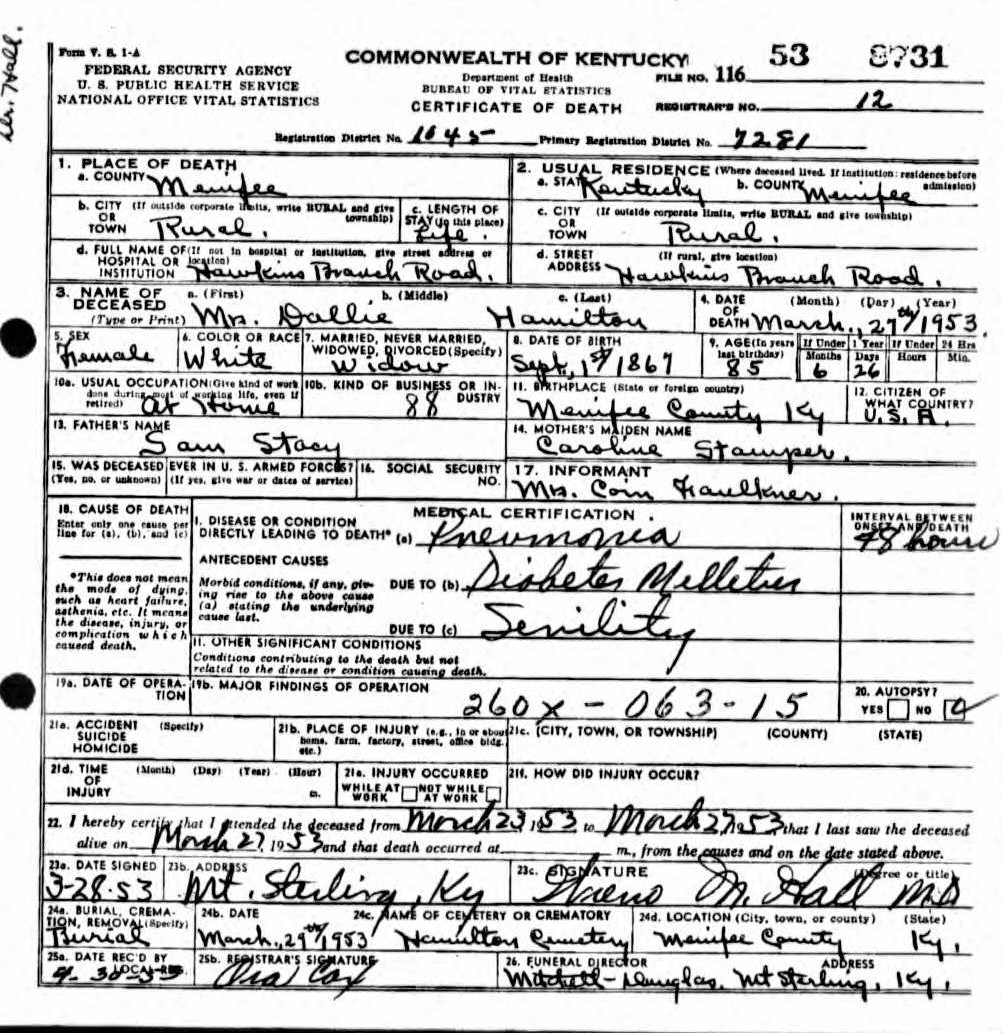 Dr. Hall.
Form V. S. 1-A
FEDERAL SECURITY AGENCY
U. S. PUBLIC HEALTH SERVICE
NATIONAL OFFICE VITAL STATISTICS
COMMONWEALTH OF KENTUCKY
Department of Health
BUREAU OF VITAL STATISTICS
CERTIFICATE OF DEATH
53 8731
FILE NO. 116
REGISTRAR'S NO. 12
Registration District No. 1045 Primary Registration District No. 7281
1. PLACE OF DEATH
a. COUNTY Menifee
2. USUAL RESIDENCE (Where deceased lived. If institution: residence before admission)
a. STATE Kentucky b. COUNTY Menifee
b. CITY (If outside corporate limits, write RURAL and give township)
OR TOWN Rural.
c. LENGTH OF STAY (in this place) Life.
c. CITY (If outside corporate limits, write RURAL and give township)
OR TOWN Rural.
d. FULL NAME OF (If not in hospital or institution, give street address or location)
HOSPITAL OR INSTITUTION Hawkins Branch Road.
d. STREET ADDRESS (If rural, give location)
Hawkins Branch Road.
3. NAME OF DECEASED (Type or Print)
a. (First) b. (Middle) c. (Last)
Mrs. Dollie Hamilton
4. DATE OF DEATH (Month) (Day) (Year)
March., 27th/1953.
5. SEX Female
6. COLOR OR RACE White
7. MARRIED, NEVER MARRIED, WIDOWED, DIVORCED (Specify) Widow
8. DATE OF BIRTH Sept., 1st/1867
9. AGE (In years last birthday) 85
If Under 1 Year Months 6 Days 26
If Under 24 Hrs Hours Min.
10a. USUAL OCCUPATION (Give kind of work done during most of working life, even if retired) At Home
10b. KIND OF BUSINESS OR INDUSTRY 88
11. BIRTHPLACE (State or foreign country) Menifee County Ky
12. CITIZEN OF WHAT COUNTRY? U.S.A.
13. FATHER'S NAME Sam Stacy
14. MOTHER'S MAIDEN NAME Caroline Stamper.
15. WAS DECEASED EVER IN U. S. ARMED FORCES?
(Yes, no, or unknown) (If yes, give war or dates of service)
16. SOCIAL SECURITY NO.
17. INFORMANT
Mrs. Faulkner.
18. CAUSE OF DEATH
Enter only one cause per line for (a), (b), and (c)
*This does not mean the mode of dying, such as heart failure, asthenia, etc. It means the disease, injury, or complication which caused death.
MEDICAL CERTIFICATION
INTERVAL BETWEEN ONSET AND DEATH
I. DISEASE OR CONDITION
DIRECTLY LEADING TO DEATH* (a) Pneumonia 48 hours
ANTECEDENT CAUSES
Morbid conditions, if any, giving rise to the above cause (a) stating the underlying cause last.
DUE TO (b) Diabetes Mellitus
DUE TO (c) Senility
11. OTHER SIGNIFICANT CONDITIONS
Conditions contributing to the death but not related to the disease or condition causing death.
19a. DATE OF OPERATION
19b. MAJOR FINDINGS OF OPERATION
260X - 063-15
20. AUTOPSY?
YES NO
21a. ACCIDENT SUICIDE HOMICIDE (Specify)
21b. PLACE OF INJURY (e.g., in or about home, farm, factory, street, office bldg. etc.)
21c. (CITY, TOWN, OR TOWNSHIP) (COUNTY) (STATE)
21d. TIME OF INJURY (Month) (Day) (Year) (Hour) m.
21e. INJURY OCCURRED
WHILE AT WORK NOT WHILE AT WORK
21f. HOW DID INJURY OCCUR?
22. I hereby certify that I attended the deceased from March 23, 1953 to March 27, 1953 that I last saw the deceased
alive on March 27, 1953 and that death occurred at m., from the causes and on the date stated above.
23a. DATE SIGNED 3-28-53
23b. ADDRESS Mt. Sterling, Ky
23c. SIGNATURE (Degree or title)
M. Hall M.D
24a. BURIAL, CREMATION, REMOVAL (Specify) Burial
24b. DATE March., 29th/1953
24c. NAME OF CEMETERY OR CREMATORY Hamilton Cemetery
24d. LOCATION (City, town, or county) (State)
Menifee County Ky.
25a. DATE REC'D BY LOCAL REG.
25b. REGISTRAR'S SIGNATURE Ora Cox
26. FUNERAL DIRECTOR ADDRESS
Mitchell-Douglas, Mt Sterling, Ky.